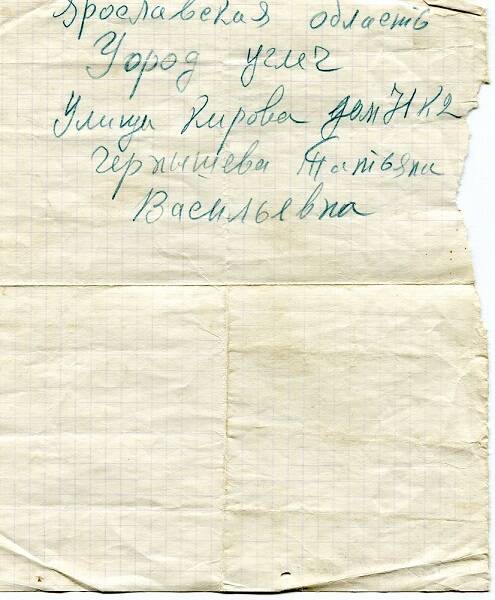 Ярославская область
Город углеч
Улица Кирова дом Н К2
Чернышева Татьяна
Васильевна